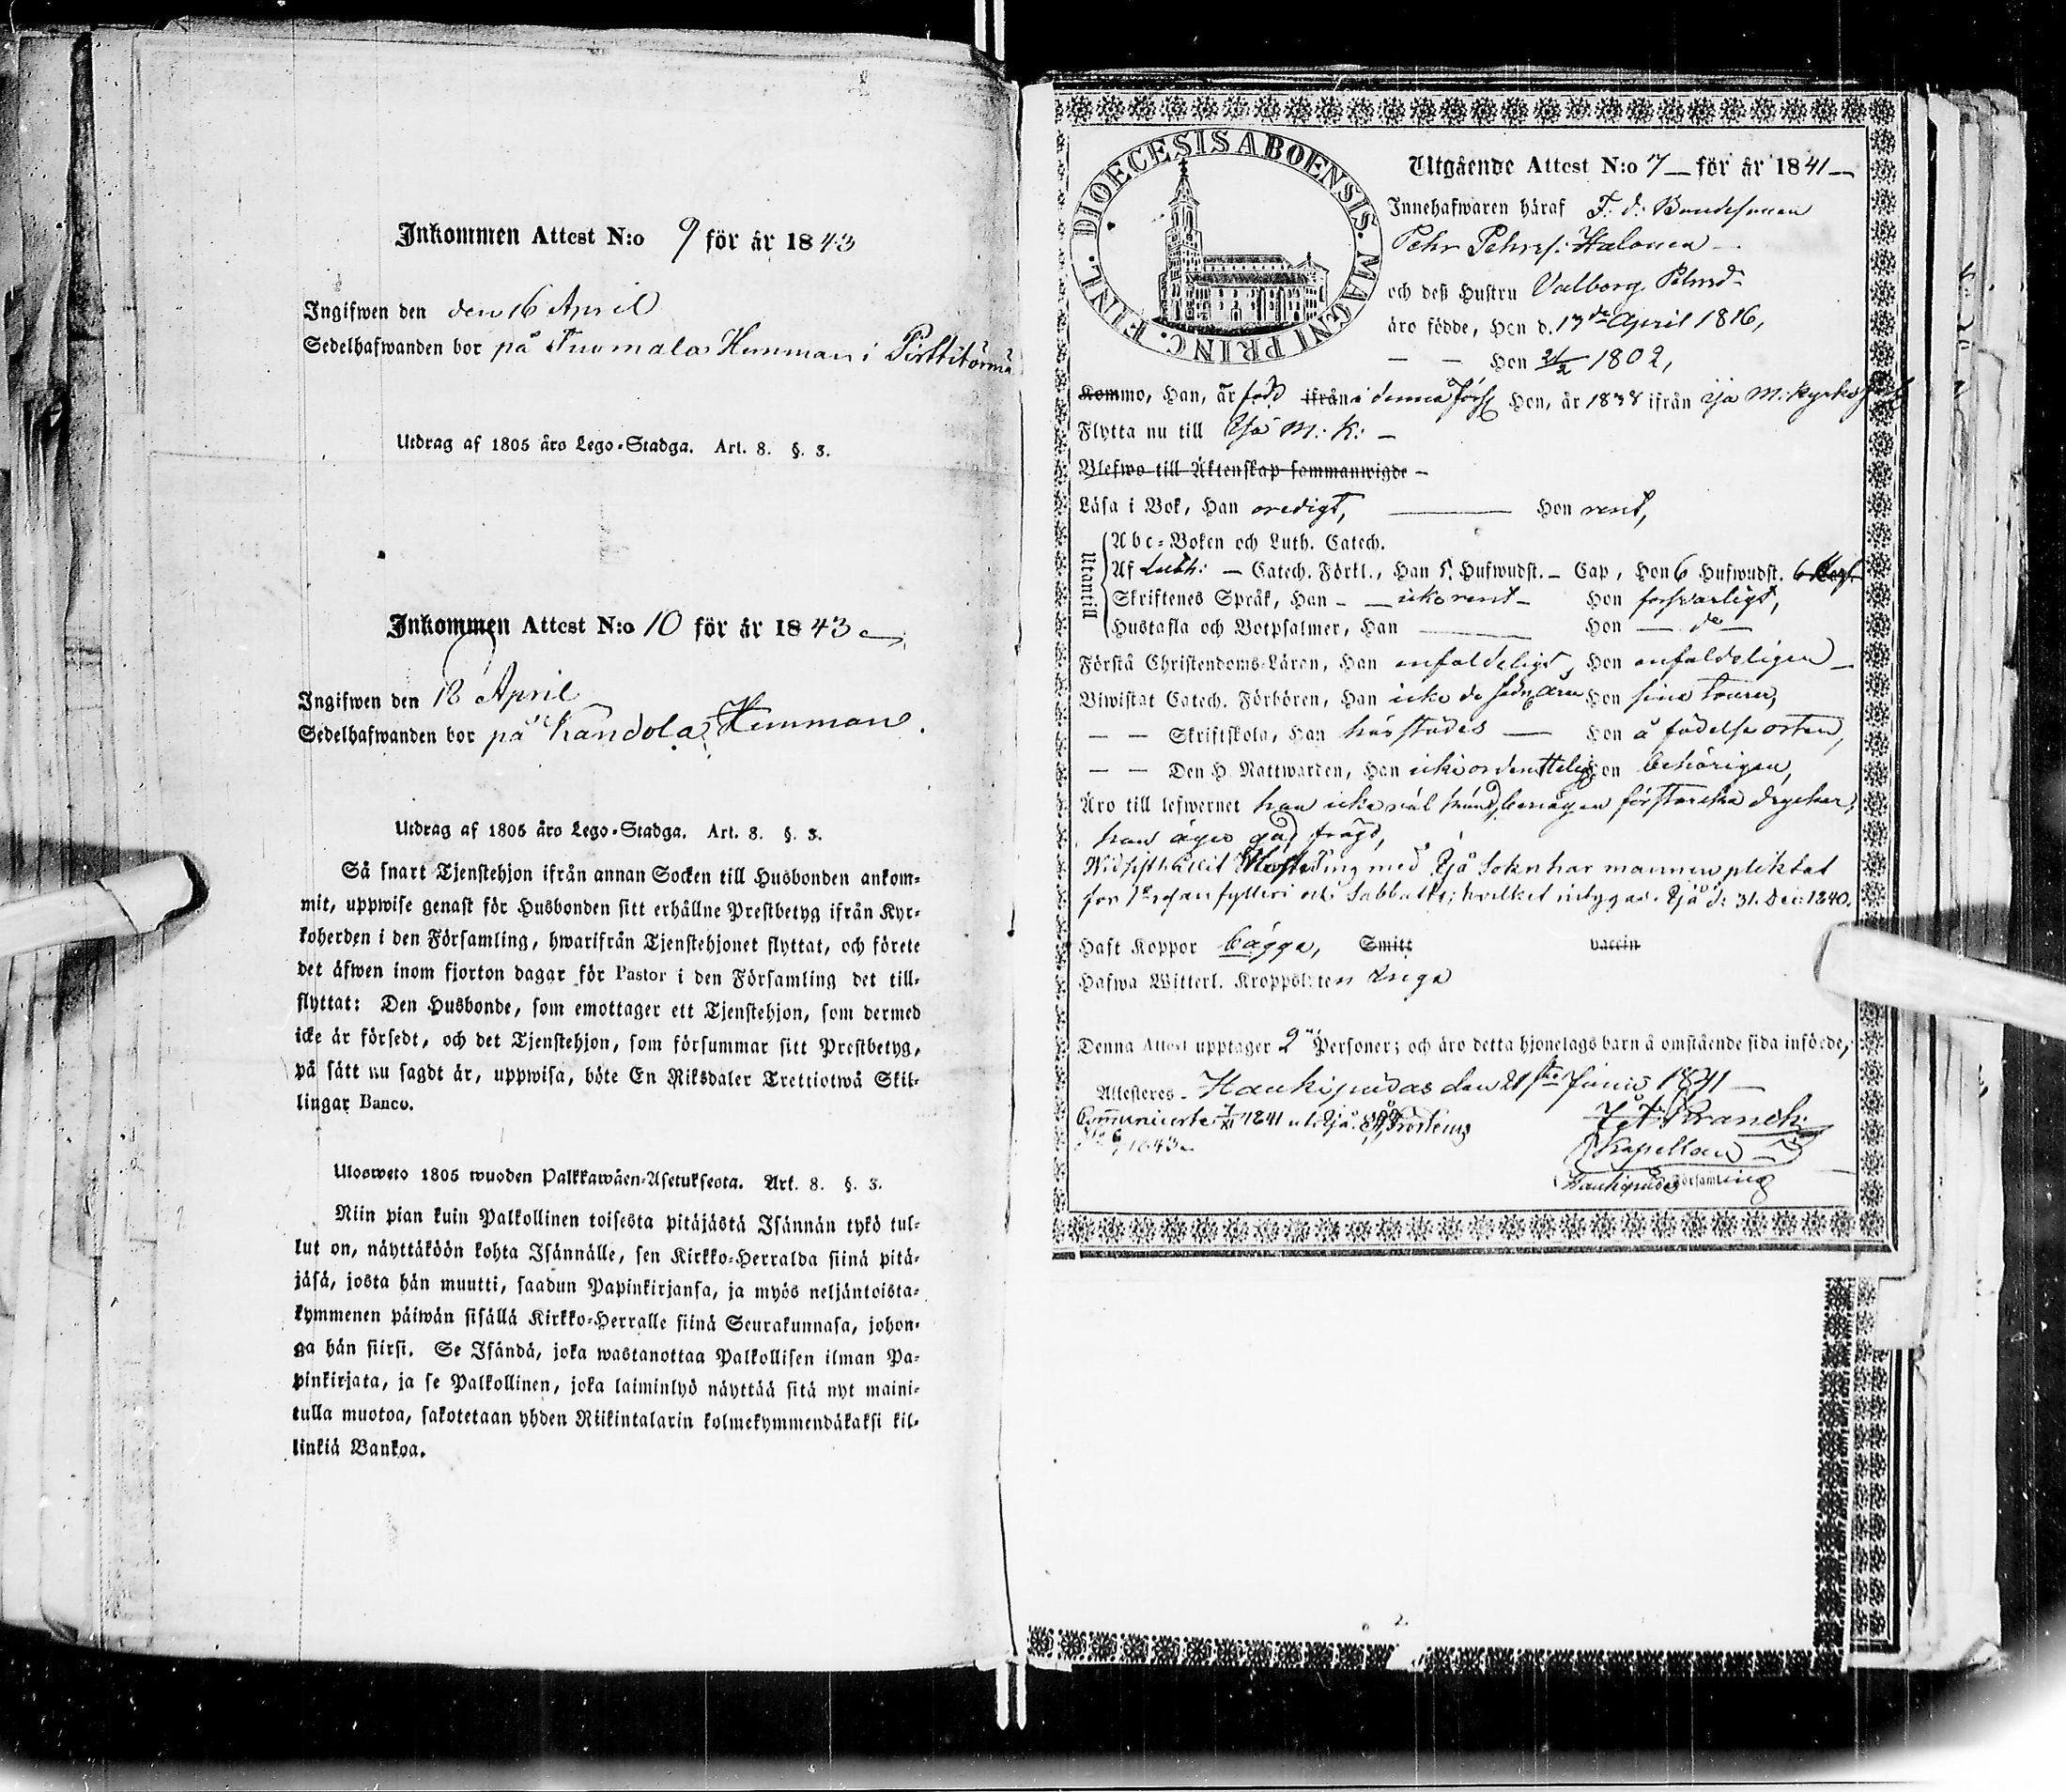 Inkommen Attest N:o 9 för år 1843
Ingifwen den den 16 April
Sedelhafwanden bor på Tuomala Hemman i Pirttitörmä
Utdrag af 1805 års Lego-Stadga. Art. 8. §. 3.
Inkommen Attest N:o 10 för år 1843
Ingifwen den 18 April
Sedelhafwanden bor på Kandola Hemman.
Utdrag af 1805 års Lego-Stadga. Art. 8. §. 3.
Så snart Tjenstehjon ifrån annan Socken till Husbonden ankom-
mit, uppwise genast för Husbonden sitt erhållne Prestbetyg ifrån Kyr-
koherden i den Församling, hwarifrån Tjenstehjonet flyttat, och förete
det äfwen inom fjorton dagar för Pastor i den Församling det till-
flyttat: Den Husbonde, som emottager ett Tjenstehjon, som dermed
icke är försedt, och det Tjenstehjon, som försummar sitt Prestbetyg,
på sätt nu sagdt är, uppwisa, böte En Riksdaler Trettiotwå Skil-
lingar Banco.
Ulosweto 1805 wuoden Palkkawäen-Asetuksesta. Art. 8. §. 3.
Niin pian kuin Palkollinen toisesta pitäjästä Isännän tykö tul-
lut on, näyttäköön kohta Isännälle, sen Kirkko-Herralda siinä pitä-
jäsä, josta hän muutti, saadun Papinkirjansa, ja myös neljäntoista-
kymmenen päiwän sisällä Kirkko-Herralle siinä Seurakunnasa, johon-
ga hän siirsi. Se Isändä, joka wastanottaa Palkollisen ilman Pa-
pinkirjata, ja se Palkollinen, joka laiminlyö näyttää sitä nyt maini-
tulla muotoa, sakotetaan yhden Riikintalarin kolmekymmendäkaksi kil-
linkiä Bankoa.
DIOECESIS ABOENSIS. MAGNI PRINC. FINL.
Utgående Attest N:o 7 för år 1841
Innehafwaren häraf F. d. Bondesonen
Pehr Pehrs: Halonen
och deß Hustru Valborg Pehrsd:
äro födde, Han d. 13de April 1816,
— — Hon 21/2 1802,
Kommo, Han, är född ifrån i denna förs. Hon, år 1838 ifrån Ijå M: kyrko
Flytta nu till Ijå M: K: —
Blefwo till Äktenskap sammanwigde —
Läsa i Bok, Han oredigt, — Hon rent,
Utantill
Abc-Boken och Luth. Catech.
Af Luth: — Catech. Förkl., Han 5. Hufwudst. — Cap, Hon 6 Hufwudst.
Skriftenes Språk, Han — icke rent — Hon försvarligt,
Hustafla och Botpsalmer, Han — Hon — do —
Förstå Christendoms-Läran, Han enfaldeligt, Hon enfaldeligen —
Biwistat Catech. Förhören, Han icke de sedn. åren Hon sine tourer,
— — Skriftskola, Han härstädes — Hon å födelse orten,
— — Den H. Nattwarden, Han icke ordentteligt Hon behörigen,
Äro till lefwernet han icke väl känd, benägen för starcka drycker,
hon äger god frägd,
Wid sisthållit ting med Ijå Soken har mannen pliktat
för 1sta resan fylleri och Sabbatts; hvilket intygas. Ijå d: 31. Dec: 1840.
Haft Koppor bägge, Smitt vaccin
Hafwa Witterl. Kroppslyten inga
Denna Attest upptager 2 Personer; och äro detta hjonelags barn å omstående sida införde,
Attesteras. Haukipudas den 21ste Junii 1841
Communicerte 1841 Ijå Frosterus
1843
Branch
Kapellan
Haukipudas Församling